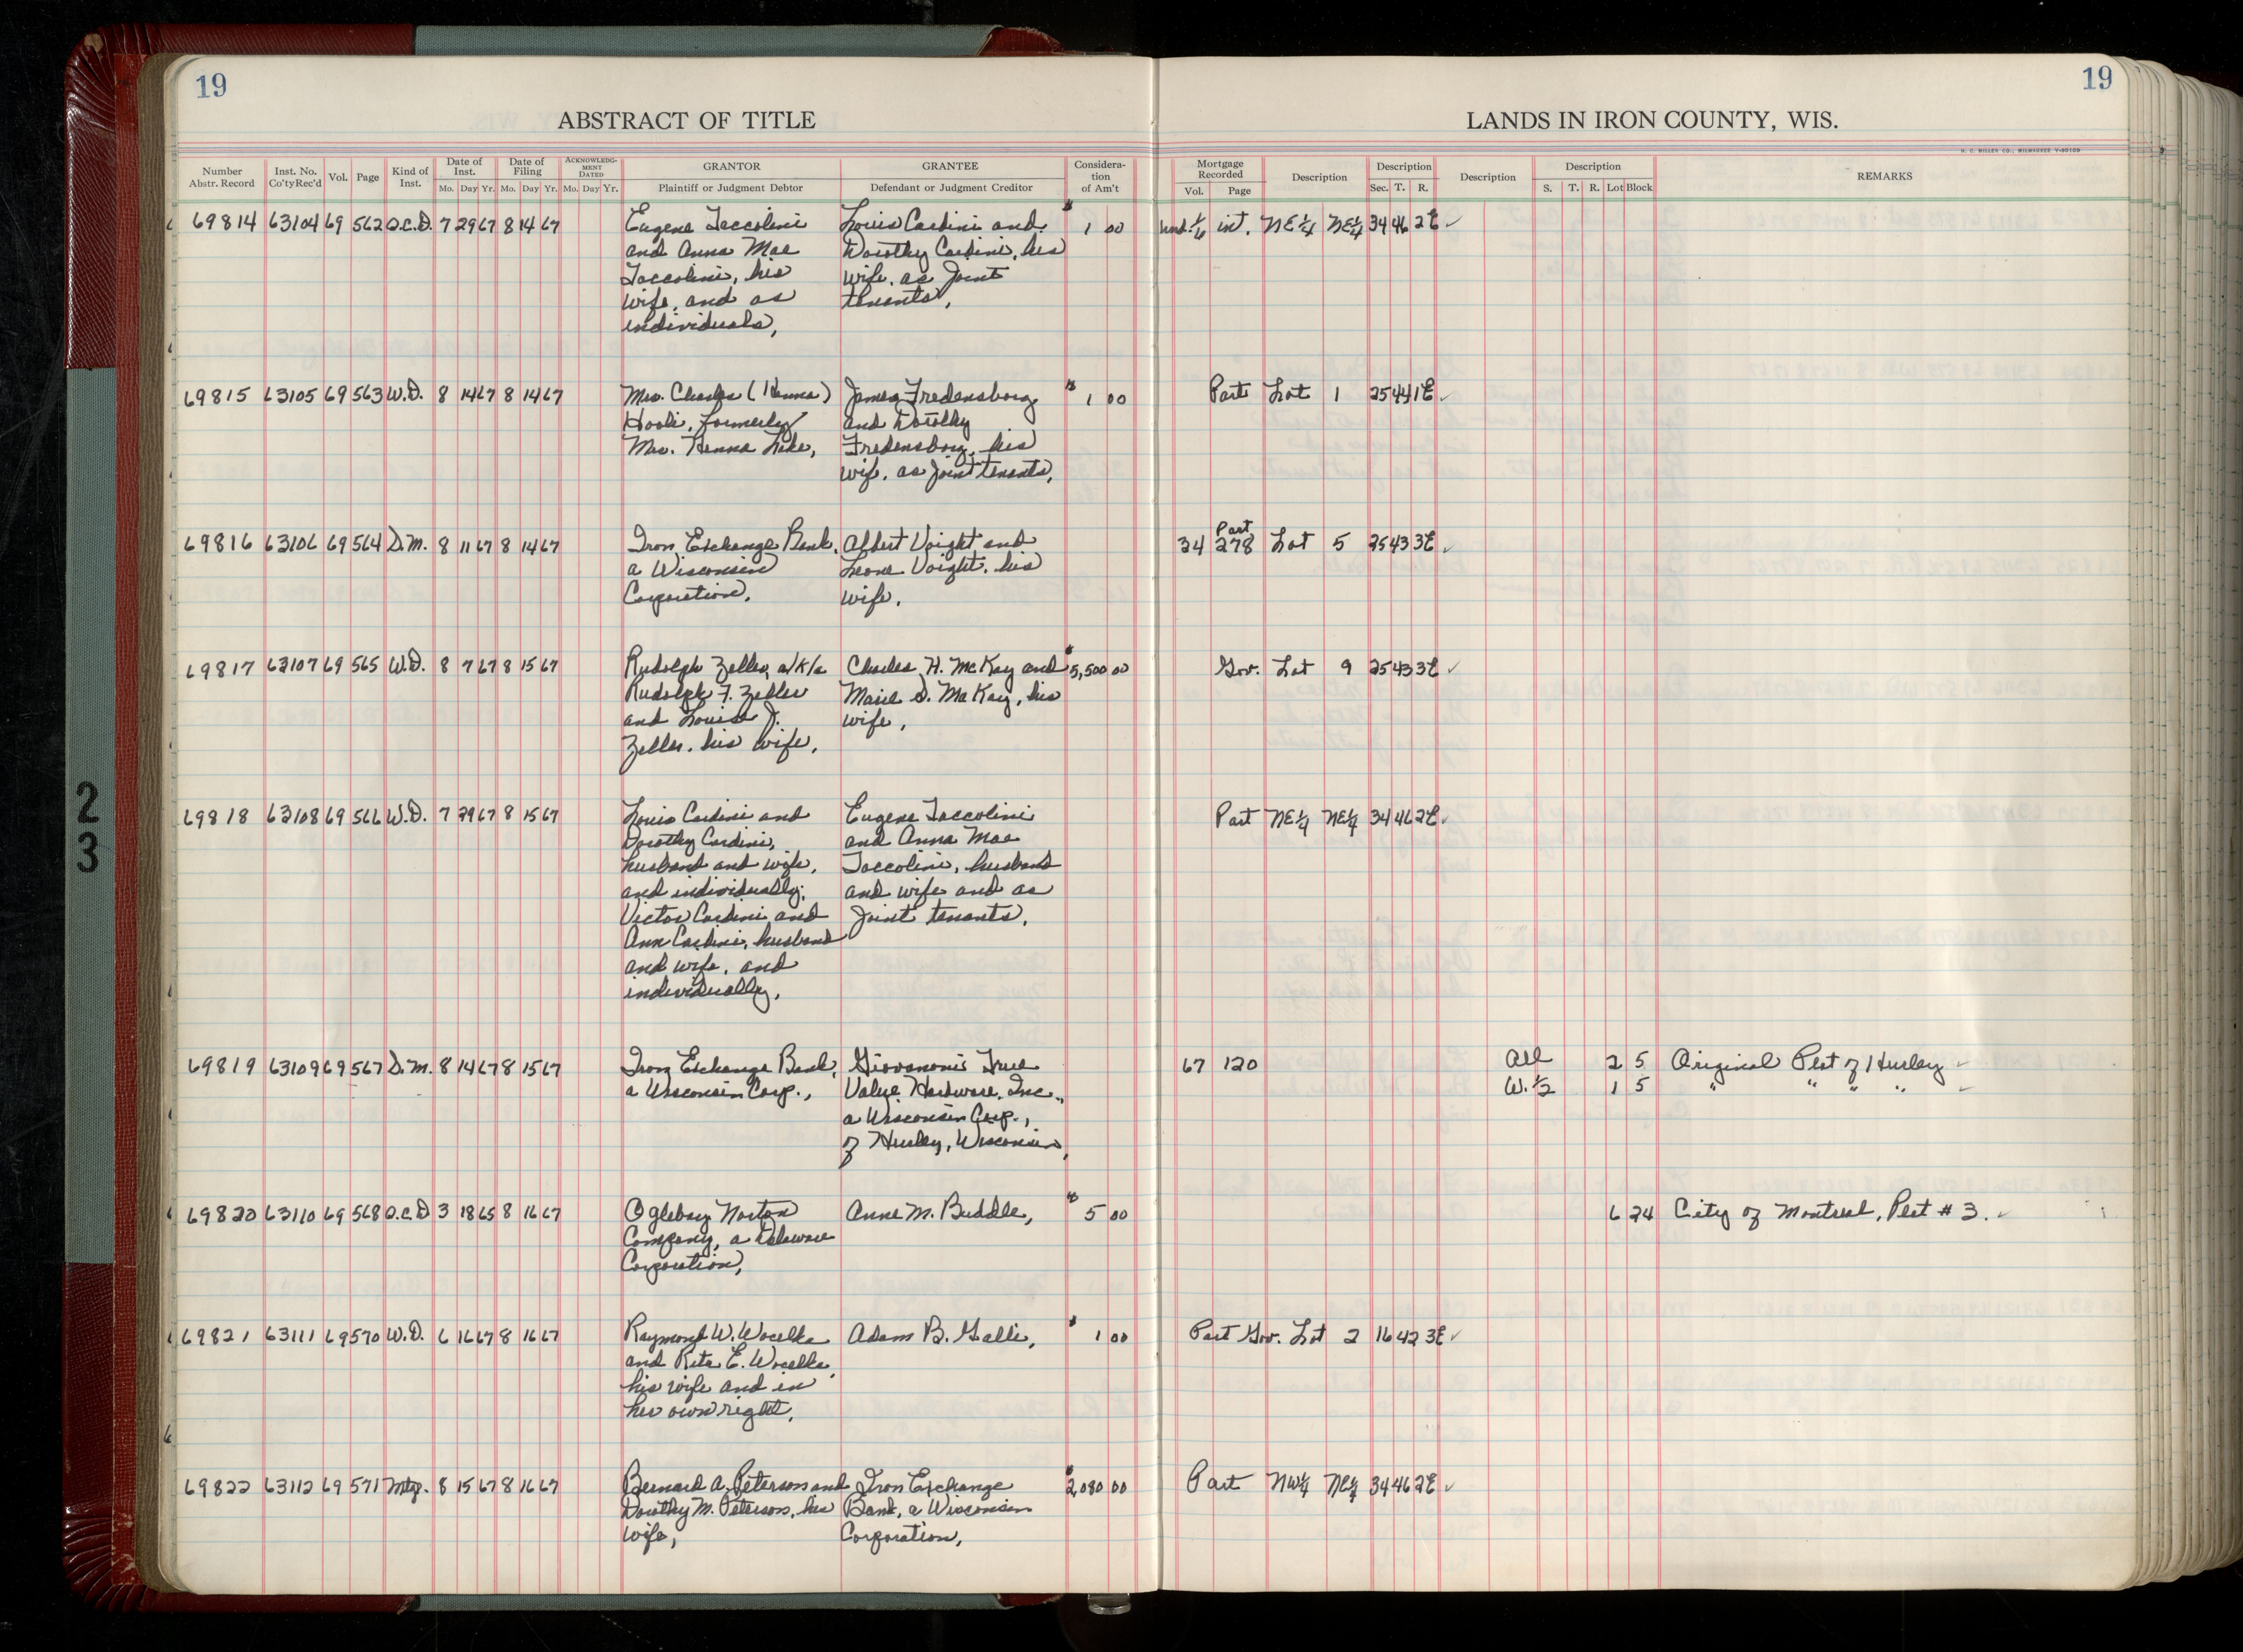 19
19
ABSTRACT OF TITLE
LANDS IN IRON COUNTY, WIS.
H. C. MILLER CO., MILWAUKEE
Number Abstr. Record | Inst. No. Co'ty Rec'd | Vol. | Page | Kind of Inst. | Date of Inst. Mo. Day Yr. | Date of Filing Mo. Day Yr. | ACKNOWLEDGMENT DATED Mo. Day Yr. | GRANTOR Plaintiff or Judgment Debtor | GRANTEE Defendant or Judgment Creditor | Consideration of Am't | Mortgage Recorded Vol. Page | Description | Description Sec. T. R. | Description | Description S. T. R. Lot Block | REMARKS
69814 63104 69 562 Q.C.D. 7 29 67 8 14 67 Eugene Taccolini Louis Cardini and $1 00 Und. 1/6 int. NE 1/4 NE 1/4 34 46 2E ✓
and Anna Mae Dorothy Cardini, his
Taccolini, his wife, as joint
wife, and as tenants,
individuals,
69815 63105 69 563 W.D. 8 14 67 8 14 67 Mrs. Charles (Henna) James Fredensborg $1 00 Part Lot 1 25 44 1E ✓
formerly and Dorothy
Mrs. Henna Lake, Fredensborg, his
wife, as joint tenants,
69816 63106 69 564 D.M. 8 11 67 8 14 67 Iron Exchange Bank, Albert Voight and 34 Part 278 Lot 5 25 43 3E ✓
a Wisconsin Leone Voight, his
Corporation, wife,
69817 63107 69 565 W.D. 8 7 67 8 15 67 Rudolph Zeller, a/k/a Charles H. McKay and $5,500 00 Gov. Lot 9 25 43 3E ✓
Rudolph F. Zeller Marie S. McKay, his
and Louise J. wife,
Zeller, his wife,
69818 63108 69 566 W.D. 7 29 67 8 15 67 Louis Cardini and Eugene Taccolini Part NE 1/4 NE 1/4 34 46 2E ✓
Dorothy Cardini, and Anna Mae
husband and wife, Taccolini, husband
and individually, and wife and as
Victor Cardini and joint tenants,
Ann Cardini, husband
and wife, and
individually,
69819 63109 69 567 D.M. 8 14 67 8 15 67 Iron Exchange Bank, Giovanoni's True 67 120 All 2 5 Original Plat of Hurley ✓
a Wisconsin Corp., Value Hardware, Inc., W. 1/2 1 5 " " " " ✓
a Wisconsin Corp.,
of Hurley, Wisconsin,
69820 63110 69 568 Q.C.D. 3 18 65 8 16 67 Oglebay Norton Anne M. Buddle, $5 00 6 24 City of Montreal, Plat # 3. ✓
Company, a Delaware
Corporation,
69821 63111 69 570 W.D. 6 16 67 8 16 67 Raymond W. Wocelka Adam B. Galli, $1 00 Part Gov. Lot 2 16 42 3E ✓
and Rita E. Wocelka,
his wife and in
her own right,
69822 63112 69 571 Mtg. 8 15 67 8 16 67 Bernard A. Peterson and Iron Exchange $2,080 00 Part NW 1/4 NE 1/4 34 46 2E ✓
Dorothy M. Peterson, his Bank, a Wisconsin
wife, Corporation,
2
3